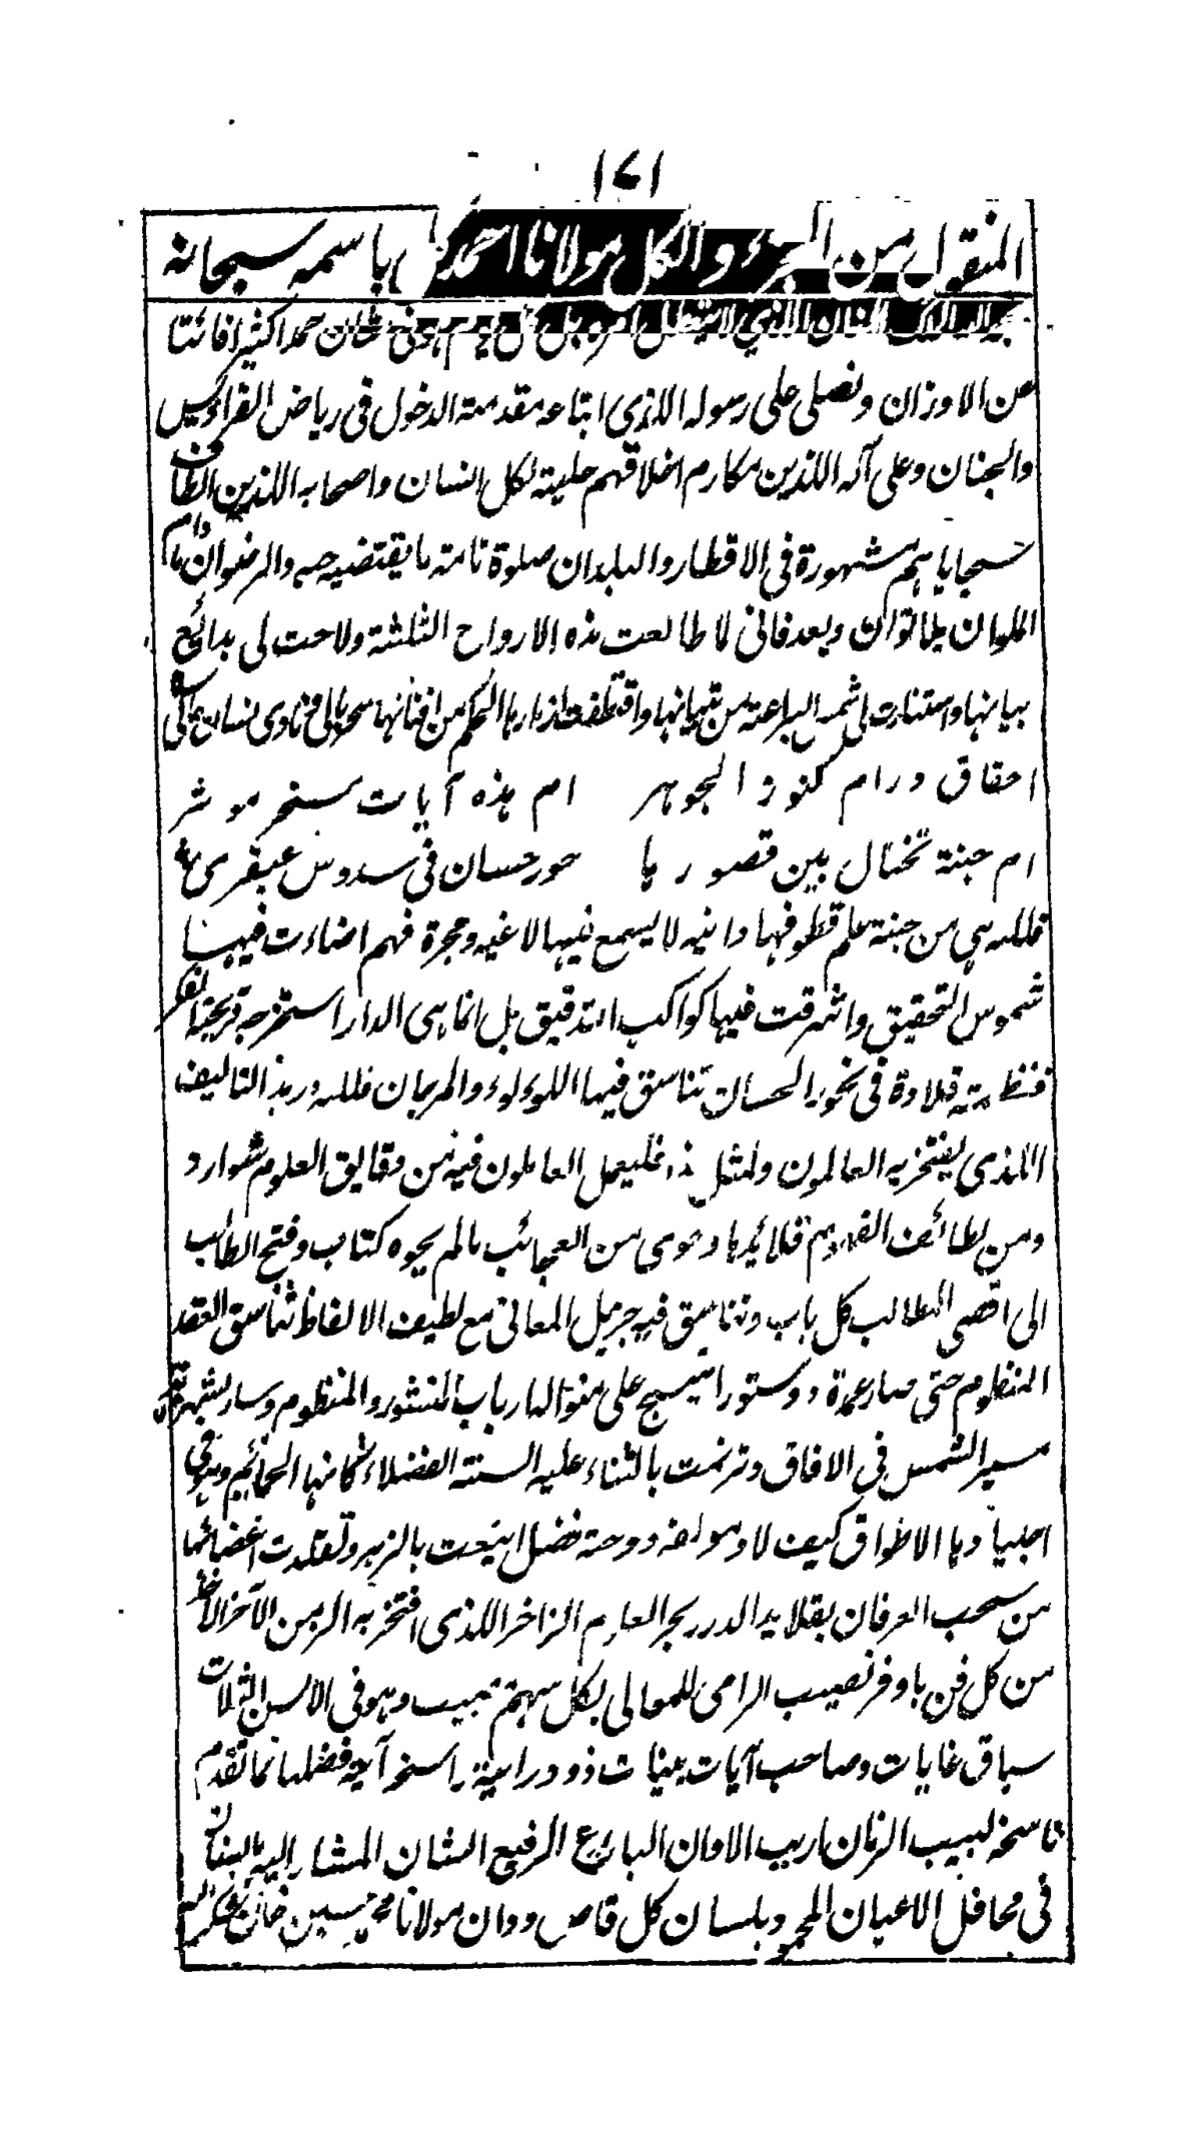 ۱۷۱
المنقول من الجزء والكل مولانا احمد باسمه سبحانه
الذي لا يشغله بل كل يوم هو في شان حمدا كثيرا فائتا
عن الاوزان ونصلی علی رسوله الذی اتباعه مقدمة الدخول فی ریاض الفرادیس
والجنان وعلی آله اللذین مکارم اخلاقهم حلیة لکل انسان واصحابه اللذین الطاف
سجایاهم مشهورة فی الاقطار والبلدان صلوة تامة ما یقتضیه حبه والرضوان ما دام
الملوان یلماتوان وبعد فانی لما طالعت هذه الارواح الثلثة ولاحت لی بدائع
بیانها واستنارت لی شمس البراعة من تبیانها واقتطفت ازهارها الحکم من افنانها
احقاق درام کنوز الجوهر ام هذه آیات سخر موثر
ام جنة تختال بین قصورها حور حسان فی سدوس عبقری
فلله هی من جنة علم قطوفها دانیه لا یسمع فیها لاغیه وحجرة فهم اضاءت فیها
شموس التحقیق واشرقت فیها کواکب التدقیق بل انما هی الدار استخرجه قریحة الفکر
فنظمته قلادة فی نحور الحسان تناسق فیها اللوءلوء والمرجان فلله در هذا التالیف
اللذی یفتخر به العالمون ولمثل هذا فلیعمل العاملون فیه من دقایق العلوم شوارد
ومن لطائف الفهوم قلائدها وحوی من العجائب مالم یحوه کتاب وفتح الطالب
الی اقصی المطالب کل باب وتناسق فیه جزیل المعانی مع لطیف الالفاظ تناسق العقد
المنظوم حتی صار عمدة ودستورا ینسج علی منوالها ارباب المنثور والمنظوم وسار
سیر الشمس فی الافاق وترنمت بالثناء علیه السنة الفضلاء کانها الحمائم وهو فی
اجیادها الاطواق کیف لا وهو لفه دوحة فضل اینعت بالزهر وتقلدت اغصانها
من سحب العرفان بقلاید الدرر بحر العلوم الزاخر اللذی افتخر به الزمن الآخر الاخذ
من کل فن باوفر نصیب الرامی للمعالی بکل سهم مصیب وهو فی الالسن الثلاث
سباق غایات وصاحب آیات بینات ذو درایة راسخه آیة فضلها لما تقدم
ناسخه لبیب الزمان اریب الاوان البارع الرفیع الشان المشار الیه بالبنان
فی محافل الاعیان المحمود بلسان کل قاص ودان مولانا محمد حسین خان